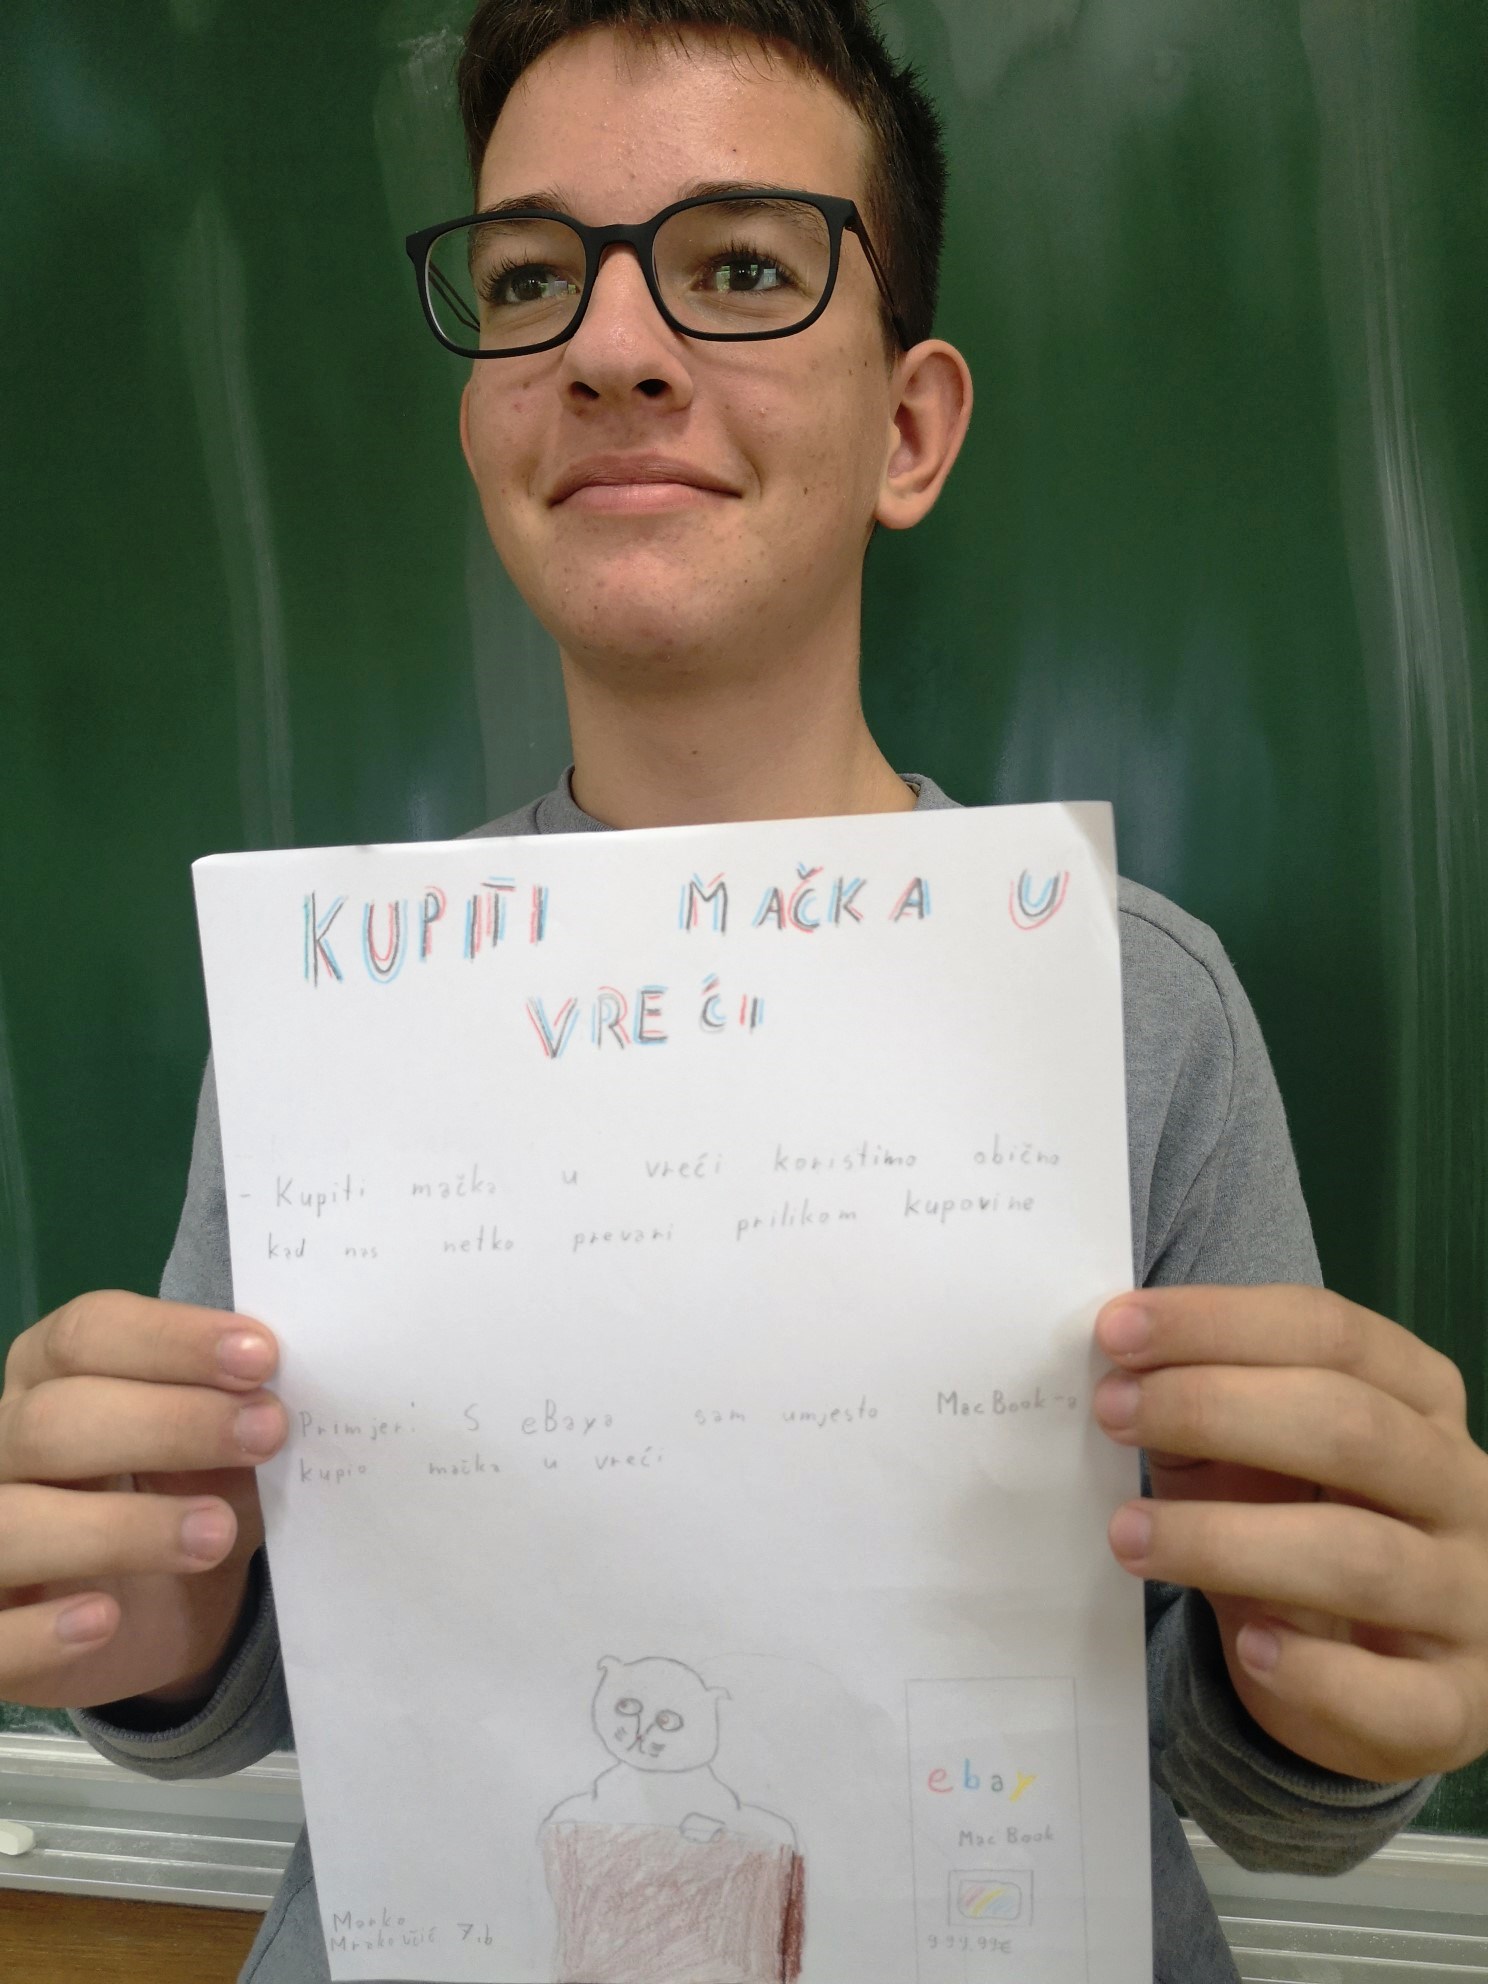 KUPITI MAČKA U
VREĆI
- Kupiti mačka u vreći koristimo obično
kad nas netko prevari prilikom kupovine
Primjeri S eBaya sam umjesto MacBook-a
kupio mačka u vreći
ebay
MacBook
999.99€
Marko
7.b